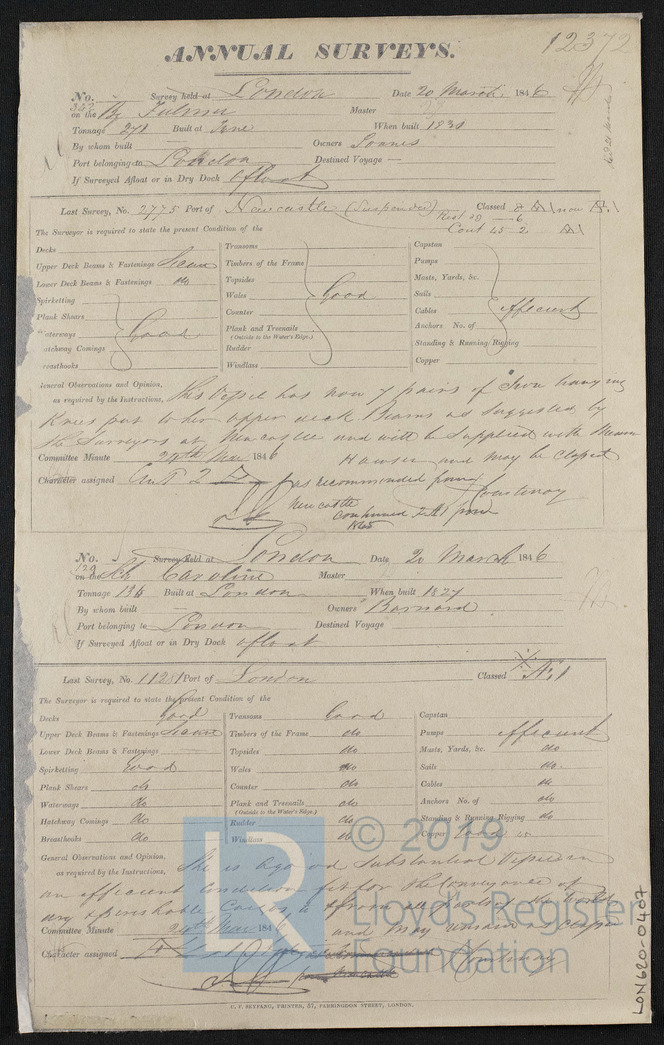 ANNUAL SURVEYS.
12372
No. 342 Survey held at London Date 20 March 1846
on the Bg Fulmer Master
Tonnage 271 Built at Tyne When built 1838
By whom built — Owners Somes
Port belonging to London Destined Voyage —
If Surveyed Afloat or in Dry Dock afloat
Last Survey, No. 2775 Port of Newcastle (Suspended) Classed 8 A1 now
Cont 45-2 A1
The Surveyor is required to state the present Condition of the
Decks
Upper Deck Beams & Fastenings
Lower Deck Beams & Fastenings do
Spirketting
Plank Shears
Waterways Good
Hatchway Comings
Breasthooks
Transoms
Timbers of the Frame
Topsides
Wales Good
Counter
Plank and Treenails
(Outside to the Water's Edge.)
Rudder
Windlass
Capstan
Pumps
Masts, Yards, &c.
Sails
Cables Efficient
Anchors No. of
Standing & Running Rigging
Copper
General Observations and Opinion,
as required by the Instructions, This Vessel has now 7 pairs of Iron hanging
Knees put to her upper deck Beams as suggested by
the Surveyors at Newcastle and will be supplied with
Hawser and may be Classed
Committee Minute 24th Mar 1846
Character assigned as recommended from
Newcastle
Courtenay
continued
No. 129 Survey held at London Date 20 March 1846
on the Sch Caroline Master
Tonnage 134 Built at London When built 1827
By whom built — Owners Barnard
Port belonging to London Destined Voyage
If Surveyed Afloat or in Dry Dock afloat
Last Survey, No. 11251 Port of London Classed Æ1
The Surveyor is required to state the present Condition of the
Decks Good
Upper Deck Beams & Fastenings
Lower Deck Beams & Fastenings
Spirketting Good
Plank Shears do
Waterways do
Hatchway Comings do
Breasthooks do
Transoms Good
Timbers of the Frame do
Topsides do
Wales do
Counter do
Plank and Treenails do
(Outside to the Water's Edge.)
Rudder do
Windlass do
Capstan
Pumps efficient
Masts, Yards, &c. do
Sails do
Cables do
Anchors No. of do
Standing & Running Rigging do
Copper Good 45
General Observations and Opinion,
as required by the Instructions, She is a good Substantial Vessel in
an efficient Condition fit for the Conveyance of
any perishable Cargo, to & from all parts of the World
and may remain as classed
Committee Minute 24th Mar 1846
Character assigned
Courtenay
C. F. SEYFANG, PRINTER, 57, FARRINGDON STREET, LONDON.
LR
© 2019
Lloyd's Register
Foundation
LON620-0407